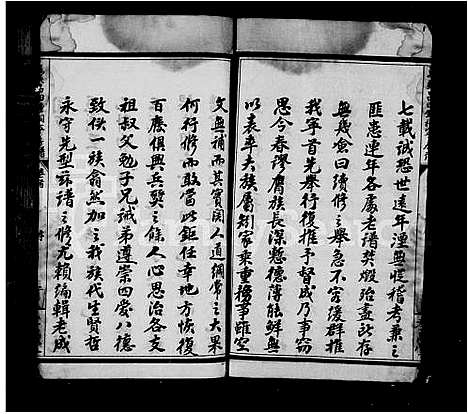 七載誠恐世遠年湮無從稽考兼之
匪患連年各處老譜焚燬殆盡所存
無幾僉曰續修之舉急不容緩群推
我寧首先舉行復推予督成乃事竊
思今春謬膺族長深慙德薄能鮮無
以表率夫族屬矧家乘重務事雖空
文無補而其實關人道綱常之大果
何行修而敢當此鉅任幸地方恢復
百廢俱興兵燹之餘人心思治各支
祖叔父勉子兄誡弟遵崇四愛八德
致佚一族翕然加之我族代生賢哲
永守先型茲譜之修尤賴編輯老成